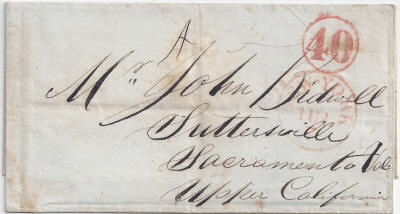 A
40
Mr John Bidwell
Suttersville
Sacramento Val
Upper California